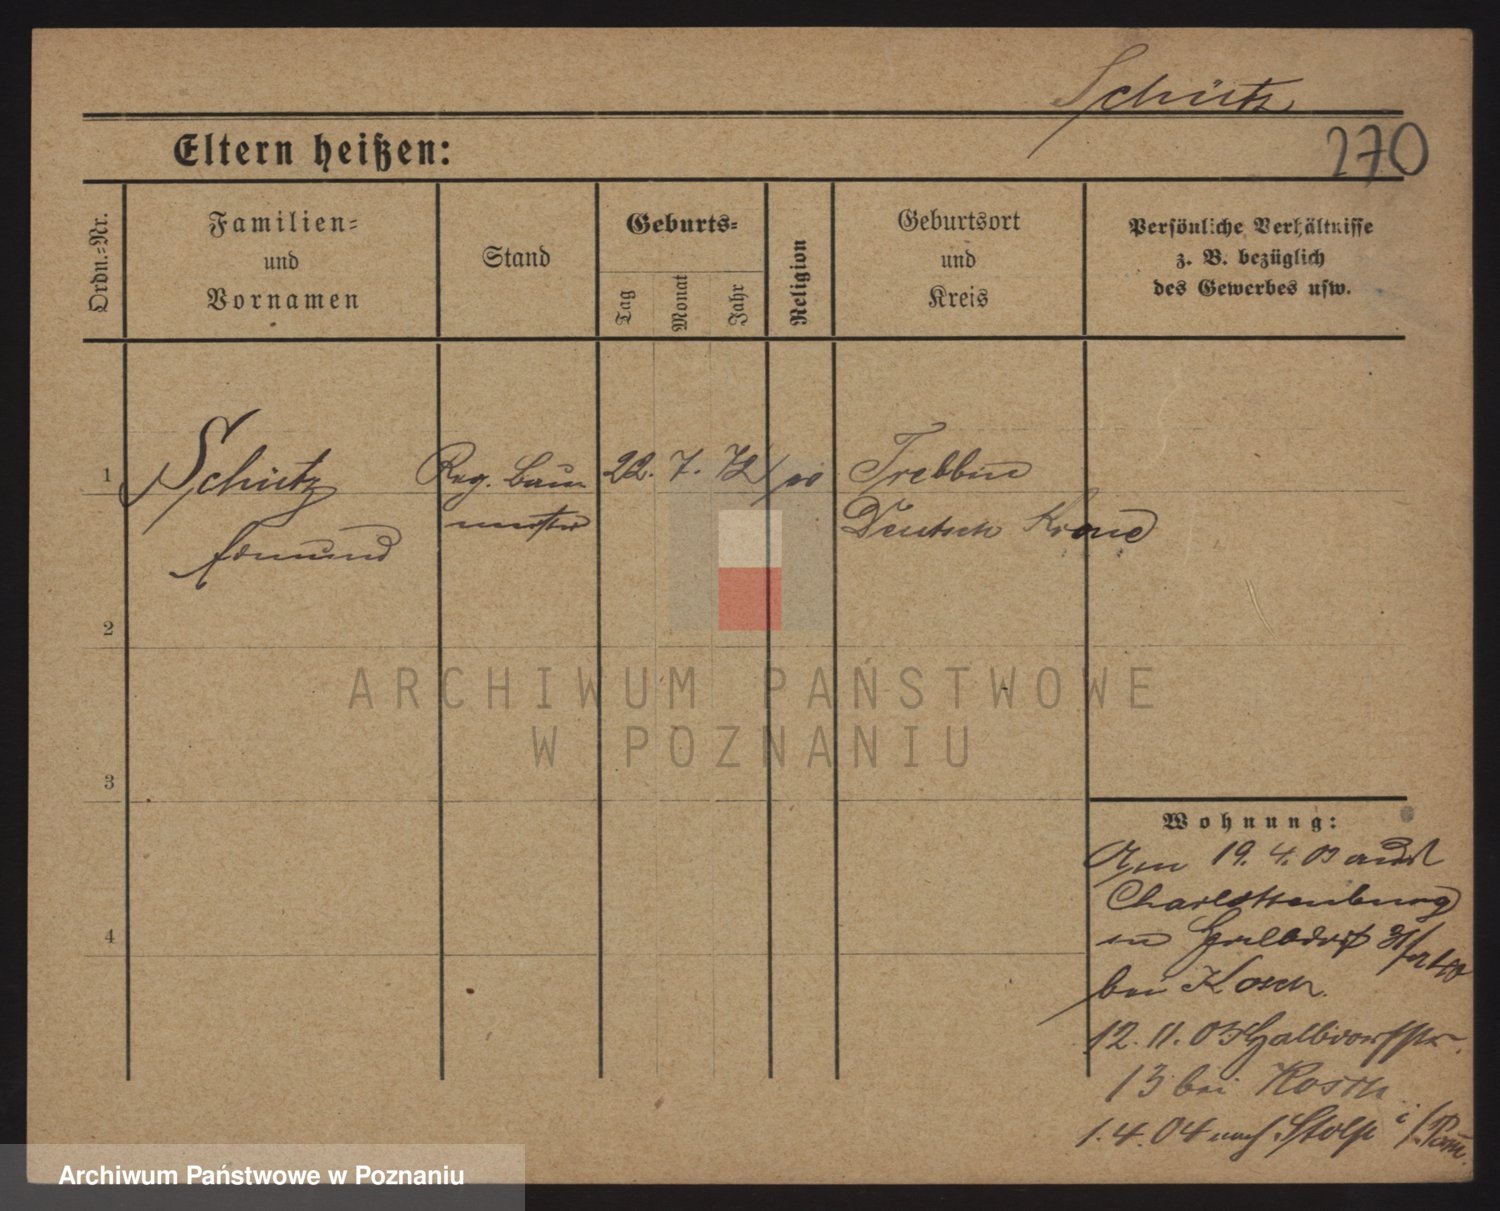 Schütz
Eltern heißen:
270
Ordn.=Nr.
Familien=
und
Vornamen
Stand
Geburts=
Tag
Monat
Jahr
Religion
Geburtsort
und
Kreis
Persönliche Verhältnisse
z. B. bezüglich
des Gewerbes usw.
1
Schütz
Edmund
Reg. Bau
meister
22. 7. 72
Trebbin
Deutsch Krone
2
3
4
ARCHIWUM PAŃSTWOWE
W POZNANIU
Wohnung:
Am 19. 4. 03 aus
Charlottenburg
in
bei Kosch
12. 11. 03 Halbdorfstr.
13 bei Kosch
1. 4. 04 nach Stolp i/Pom.
Archiwum Państwowe w Poznaniu